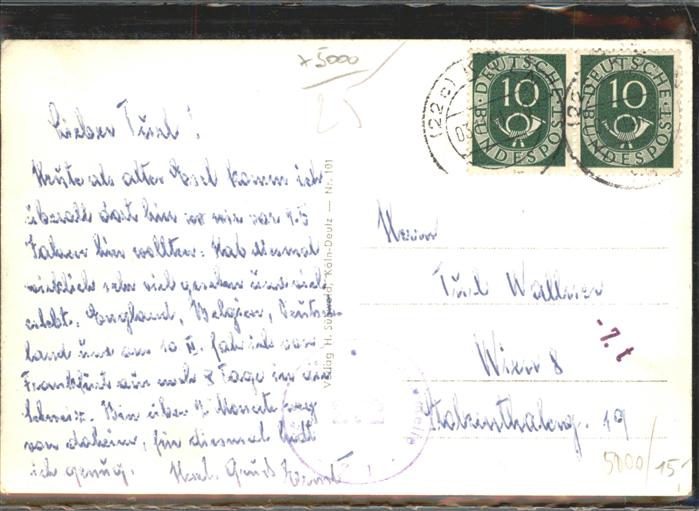 x5000
25
DEUTSCHE BUNDESPOST 10
DEUTSCHE BUNDESPOST 10
(22c)
03
Lieber Turl!
Heute als alter Esel komm ich
überall dort hin wo wir vor
Jahren hin wollten. Hab diesmal
wirklich sehr viel gesehen und viel
erlebt. England, Belgien, Deutsch
land und am 10 fah ich von
Frankfurt aus noch 8 Tage in die
Schweiz. Bin über Monate weg
von daheim, für diesmal hätt
ich genug. Herzl. Gruß
Verlag H. Köln-Deutz — Nr. 101
Herrn
Turl Wallner
Wien 8
19
5000/15